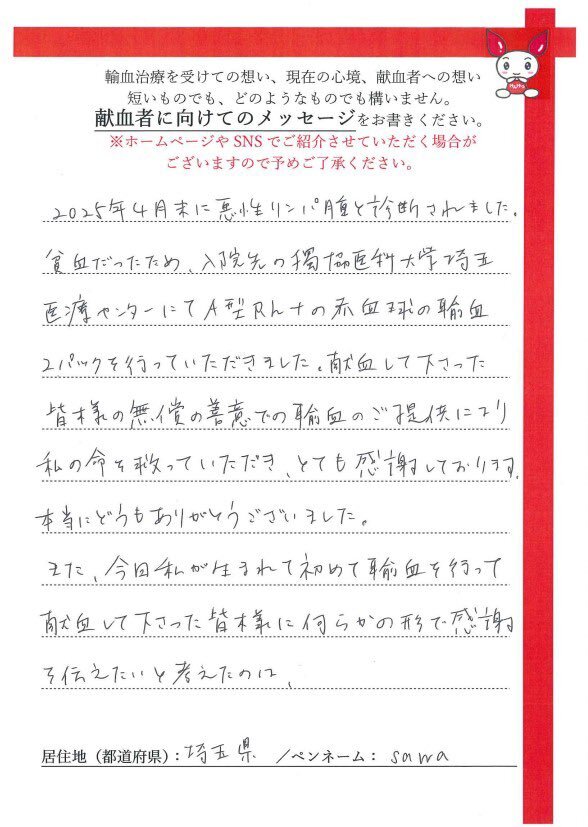 輸血治療を受けての想い、現在の心境、献血者への想い
短いものでも、どのようなものでも構いません。
献血者に向けてのメッセージをお書きください。
※ホームページやSNSでご紹介させていただく場合が
ございますので予めご了承ください。
2025年4月末に悪性リンパ腫と診断されました。
貧血だったため、入院先の獨協医科大学埼玉
医療センターにてA型Rh+の赤血球の輸血
2パックを行っていただきました。献血して下さった
皆様の無償の善意での輸血のご提供により
私の命を救っていただき、とても感謝しております。
本当にどうもありがとうございました。
また、今回私が生まれて初めて輸血を行って
献血して下さった皆様に何らかの形で感謝
を伝えたいと考えたのは、
居住地（都道府県）：埼玉県 /ペンネーム： sawa